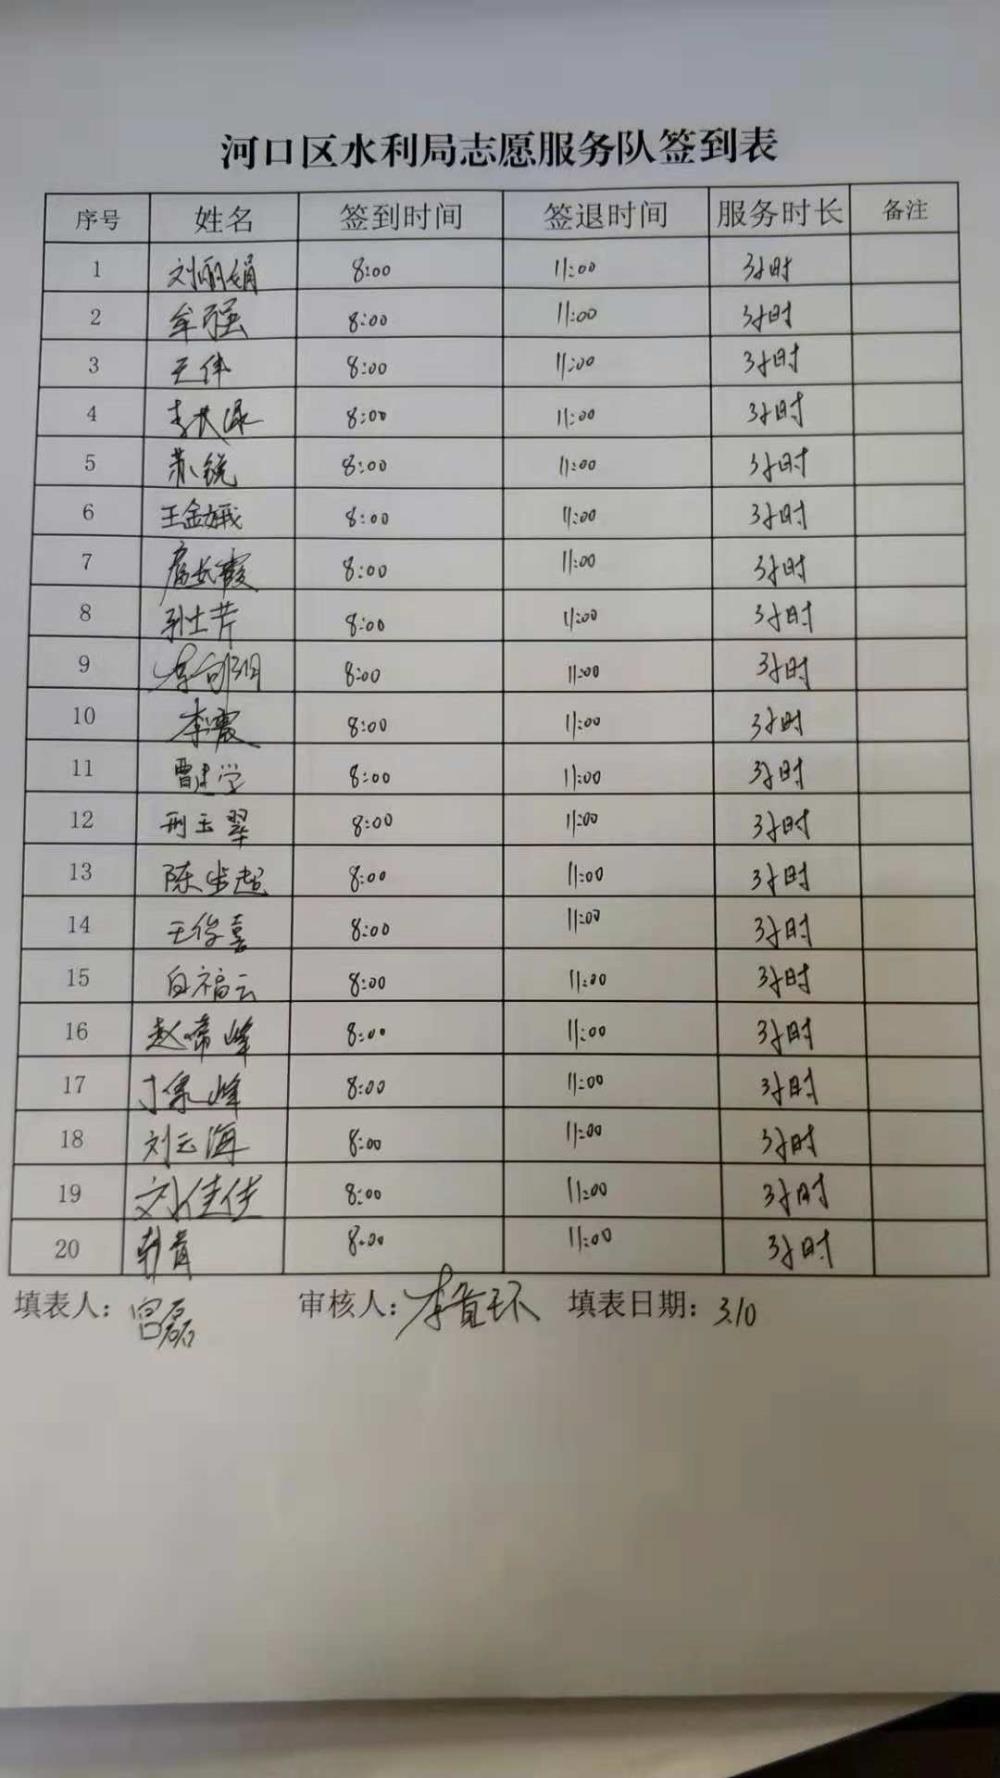 河口区水利局志愿服务队签到表
序号 姓名 签到时间 签退时间 服务时长 备注
1 刘丽娟 8:00 11:00 3小时
2 牟强 8:00 11:00 3小时
3 王伟 8:00 11:00 3小时
4 李长绿 8:00 11:00 3小时
5 苏锐 8:00 11:00 3小时
6 王金娥 8:00 11:00 3小时
7 扈长霞 8:00 11:00 3小时
8 孙士芹 8:00 11:00 3小时
9 8:00 11:00 3小时
10 李震 8:00 11:00 3小时
11 曹建学 8:00 11:00 3小时
12 邢玉翠 8:00 11:00 3小时
13 陈步超 8:00 11:00 3小时
14 王俊喜 8:00 11:00 3小时
15 白福云 8:00 11:00 3小时
16 赵啸峰 8:00 11:00 3小时
17 8:00 11:00 3小时
18 刘云海 8:00 11:00 3小时
19 刘佳佳 8:00 11:00 3小时
20 8:00 11:00 3小时
填表人: 宫磊 审核人: 填表日期: 3.10